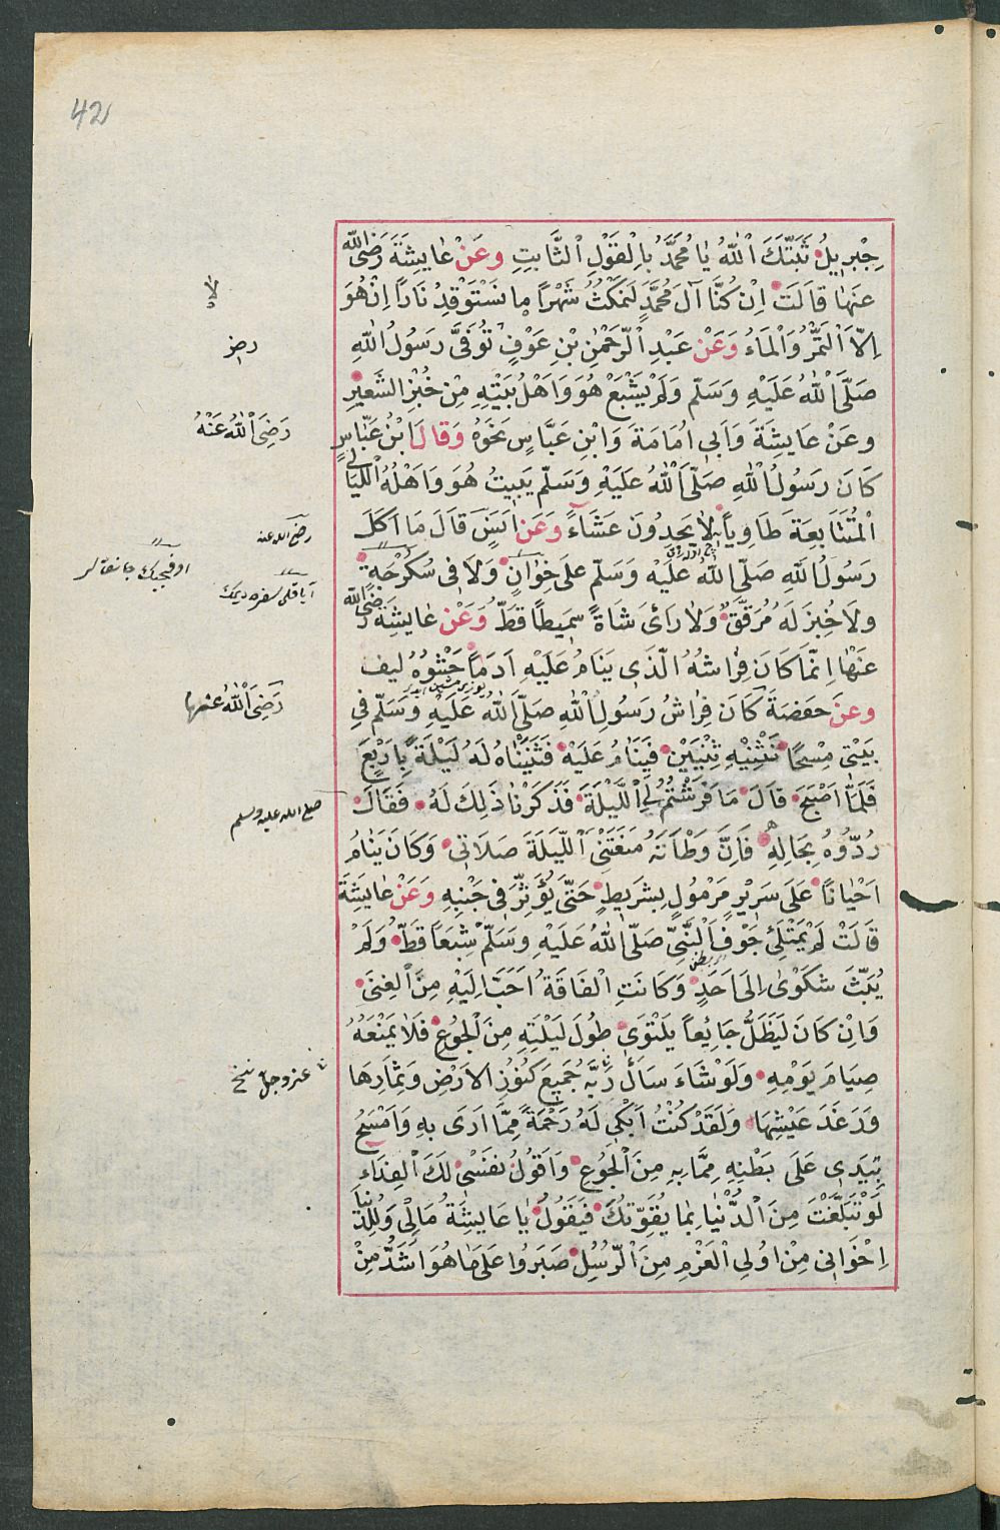 42
جِبْرِيلُ ثَبَّتَكَ اللّٰهُ يَا مُحَمَّدُ بِالْقَوْلِ الثَّابِتِ وعَنْ عَايِشَةَ رَضَىَ اللّٰه
عَنْهَا قَالَتْ اِنْ كُنَّا آلَ مُحَمَّدٍ لَنَمْكُثُ شَهْرًا مَا نَسْتَوْقِدُ نَارًا اِنْ هُوَ
اِلَّا التَّمْرُ وَالْمَاءُ وَعَنْ عَبْدِ الرَّحْمٰنِ بْنِ عَوْفٍ تُوُفِّىَ رَسُولُ اللّٰهِ
صَلَّى اللّٰهُ عَلَيْهِ وَسَلَّم وَلَمْ يَشْبَعْ هُوَ وَاَهْلُ بَيْتِهِ مِنْ خُبْزِ الشَّعِيْرِ
وعَنْ عَايِشَةَ وَاَبِى اُمَامَةَ وَابْنِ عَبَّاسٍ نَحْوُهُ وَقَالَ ابْنُ عَبَّاسٍ
كَانَ رَسُولُ اللّٰهِ صَلَّى اللّٰهُ عَلَيْهِ وَسَلَّم يَبِيتُ هُوَ وَاَهْلُهُ اللَّيَالِى
الْمُتَتَابِعَةَ طَاوِيًا لَا يَجِدُونَ عَشَاءً وَعَنْ اَنَسٍ قَالَ مَا اَكَلَ
رَسُولُ اللّٰهِ صَلَّى اللّٰه عَلَيْهِ وَسَلَّم عَلَى خِوَانٍ وَلَا فِى سُكُرْجَةٍ
وَلَا خُبِزَ لَهُ مُرَقَّقٌ وَلَا رَاَىَ شَاةً سَمِيطًا قَطُّ وَعَنْ عَايِشَةَ رَضَىَ اللّٰه
عَنْهَا اِنَّمَا كَانَ فِرَاشُهُ الَّذِى يَنَامُ عَلَيْهِ اَدَمًا حَشْوُهُ لِيف
وعَنْ حَفصَةَ كَانَ فِرَاشُ رَسُولِ اللّٰهِ صَلَّى اللّٰه عَلَيْهِ وَسَلَّم فِى
بَيْتِى مِسْحًا نَثْنِيْهِ ثِنْيَيْنِ فَيَنَامُ عَلَيْهِ فَثَنَيْنَاهُ لَهُ لَيْلَةً بِاَرْبَعٍ
فَلَمَّا اَصْبَحَ قَالَ مَا فَرَشْتُمْ لِىَ اللَّيْلَةَ فَذَكَرْنَا ذٰلِكَ لَهُ فَقَالَ
رُدُّوهُ بِحَالِهِ فَاِنَّ وَطْأَتَهُ مَنَعَتْنِى اللَّيْلَةَ صَلَاتِى وَكَانَ يَنَامُ
اَحْيَانًا عَلَى سَرِيْرٍ مَرْمُولٍ بِشَرِيطٍ حَتَّى يُؤَثِّرَ فِى جَنْبِهِ وَعَنْ عَايِشَةَ
قَالَتْ لَمْ يَمْتَلِئْ جَوْفُ النَّبِىِّ صَلَّى اللّٰهُ عَلَيْهِ وَسَلَّم شِبَعًا قَطُّ وَلَمْ
يَبُثَّ شَكْوٰى اِلَى اَحَدٍ وَكَانَتِ الْفَاقَةُ اَحَبَّ اِلَيْهِ مِنَ الْغِنَى
وَاِنْ كَانَ لَيَظَلُّ جَائِعًا يَلْتَوِى طُولَ لَيْلَتِهِ مِنَ الْجُوعِ فَلَا يَمْنَعُهُ
صِيَامَ يَوْمِهِ وَلَوْ شَاءَ سَأَلَ رَبَّهُ جَمِيعَ كُنُوزِ الْاَرْضِ وَثِمَارِهَا
وَرَغَدَ عَيْشِهَا وَلَقَدْ كُنْتُ اَبْكِى لَهُ رَحْمَةً مِمَّا اَرَى بِهِ وَاَمْسَحُ
بِيَدِى عَلَى بَطْنِهِ مِمَّا بِهِ مِنَ الْجُوعِ وَاَقُولُ نَفْسِىْ لَكَ الْفِدَاءِ
لَوْ تَبَلَّغْتَ مِنَ الدُّنْيَا بِمَا يَقُوتُكَ فَيَقُولُ يَا عَايِشَةُ مَالِى وَلِلدُّنْيَا
اِخْوَانِى مِنْ اُولِى الْعَزْمِ مِنَ الرُّسُلِ صَبَرُوا عَلَى مَا هُوَ اَشَدُّ مِنْ
رضز
رَضِىَ اللّٰهُ عَنْهُ
رضى الله عنه
رَضِىَ اللّٰهُ عنها
صلى الله عليه وسلم
عز وجل نسخ